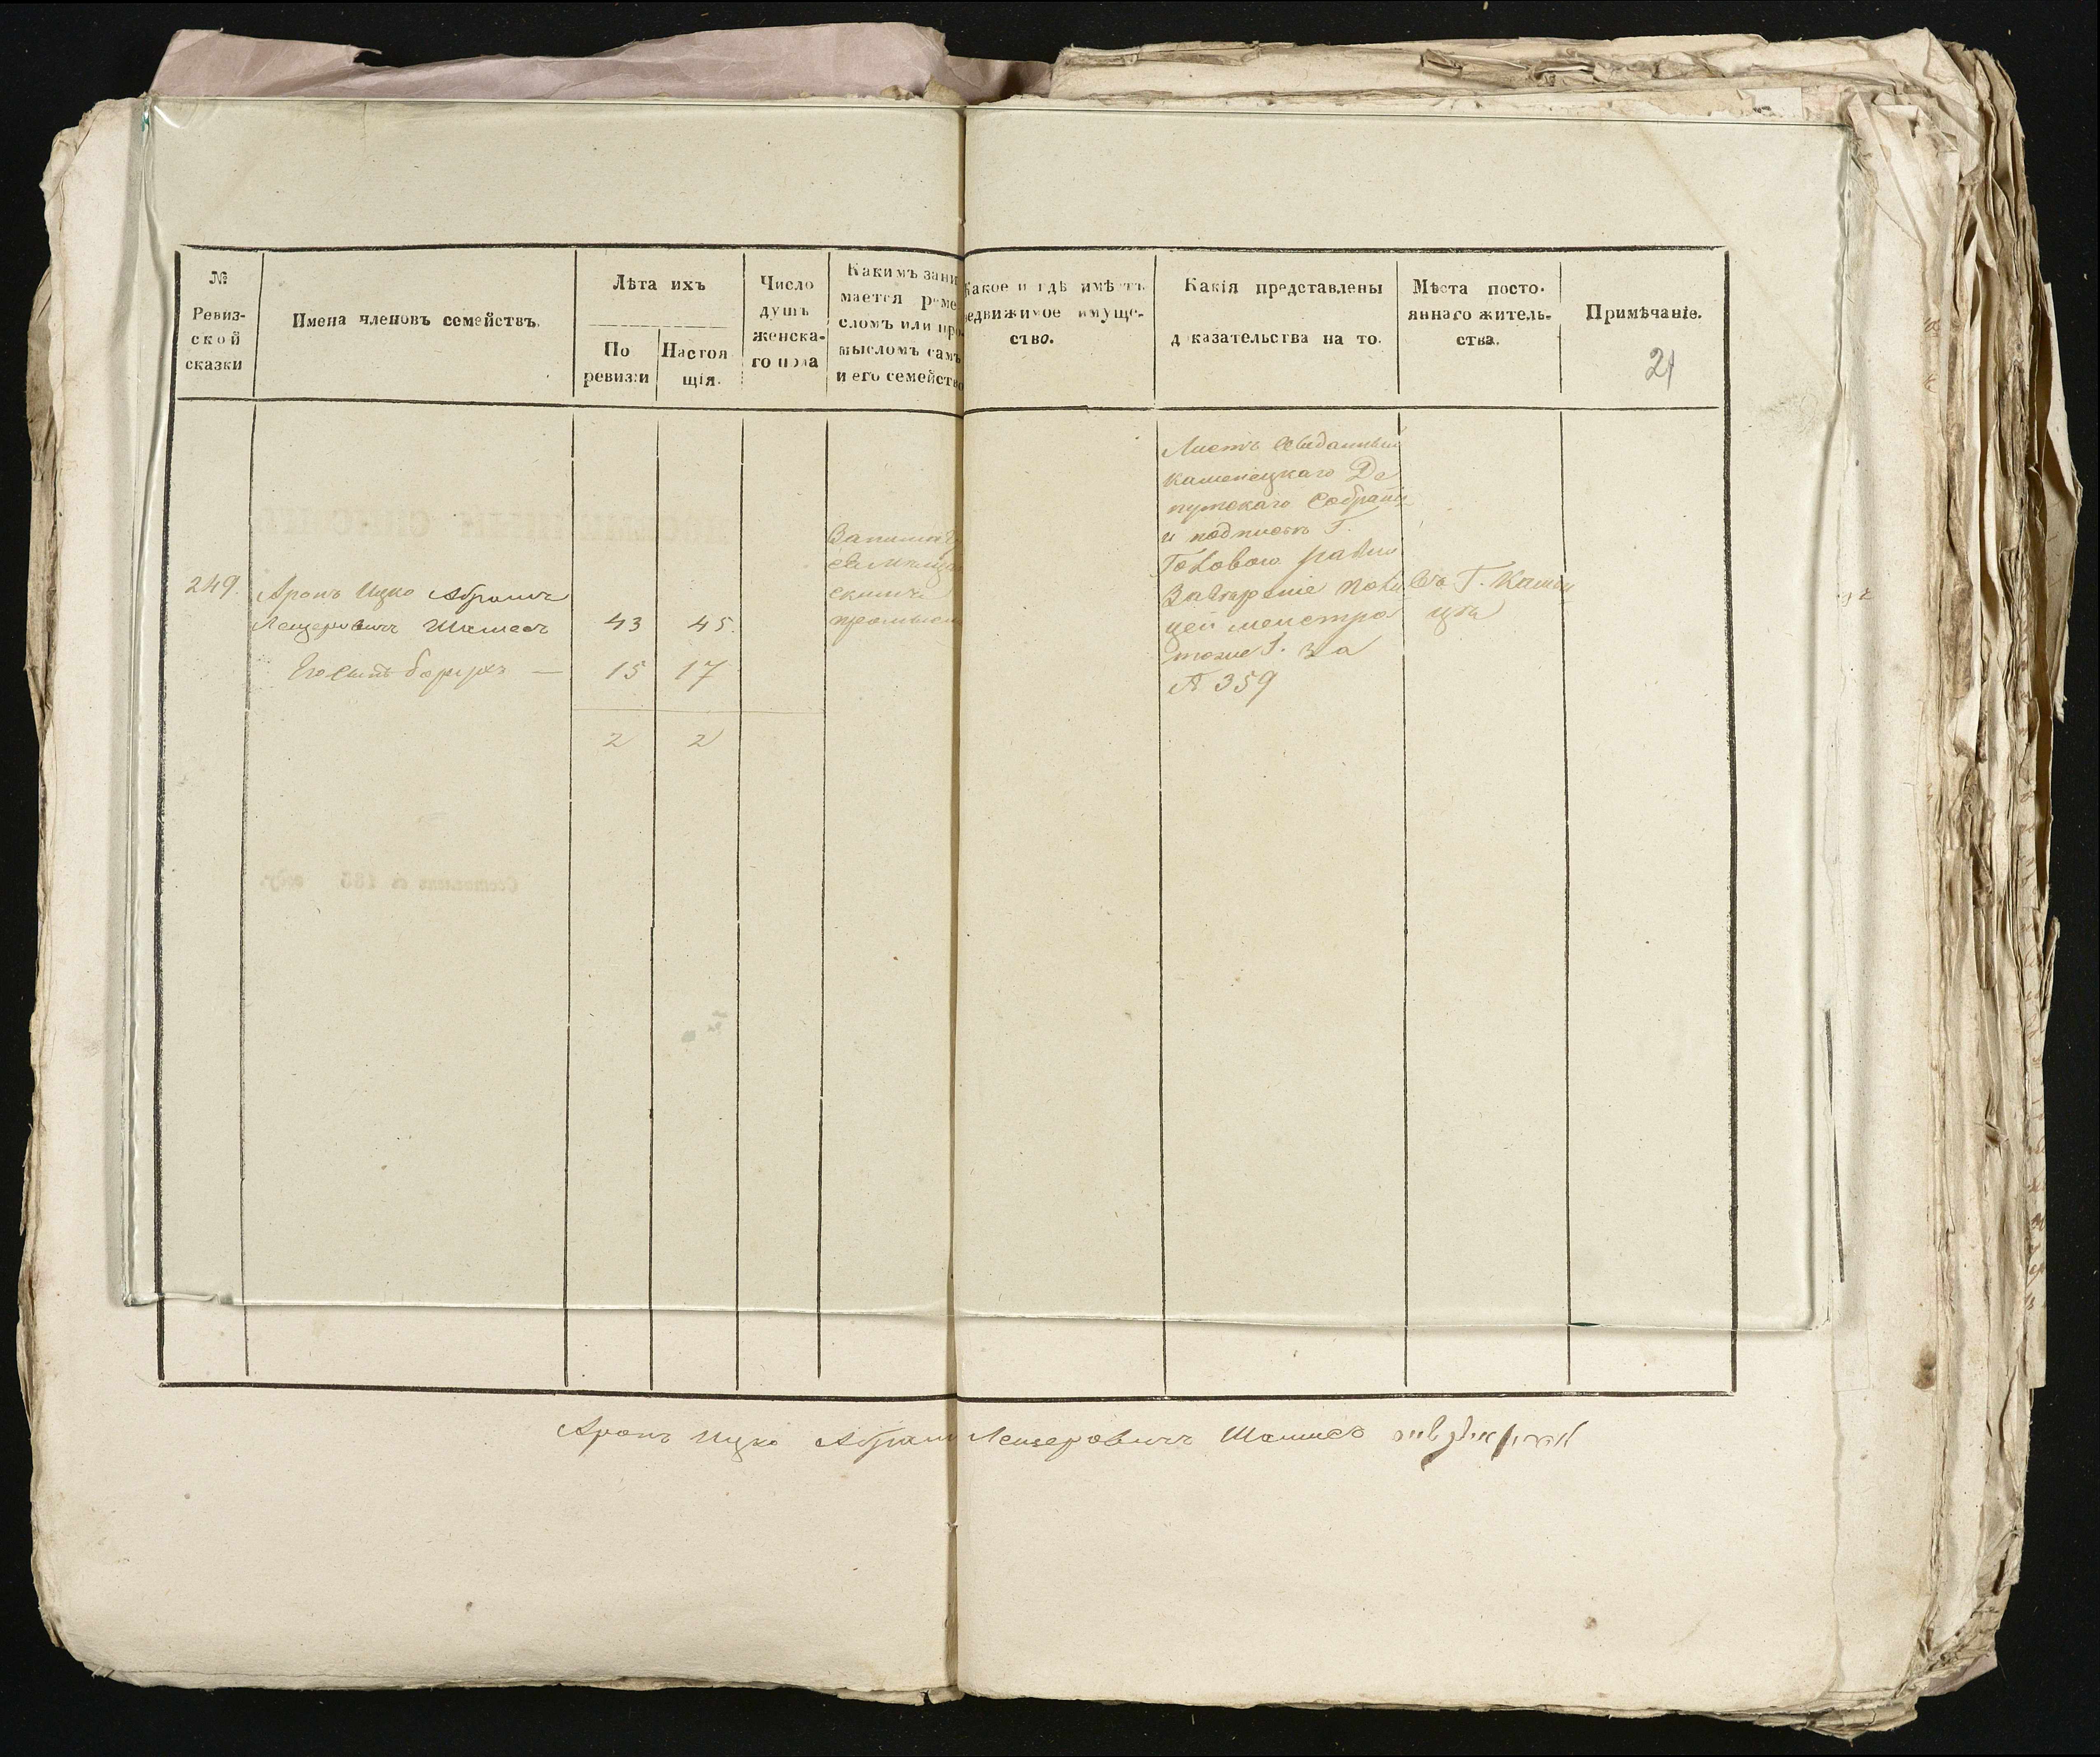 №
Ревиз-
ской
сказки
Имена членовъ семействъ.
Лѣта ихъ
По
ревизіи
Настоя
щія.
Число
душъ
женска-
го пола
Какимъ зани
мается реме
сломъ или про
мысломъ самъ
и его семейство
Какое и гдѣ имѣетъ
недвижимое имуще-
ство.
Какія представлены
доказательства на то.
Мѣста посто-
яннаго житель-
ства.
Примѣчаніе.
21
249.
Аронъ Ицко Абрамъ
Лейзеровичъ Шамесъ 43 45.
Его сынъ Борухъ — 15 17
2 2
промысло
Листъ
Каменецкаго Де
путскаго Собранія
и подписъ Г.
№ 359
Въ Г. Камен
цѣ
Аронъ Ицко Абрам Лейзеровичъ Шамесъ